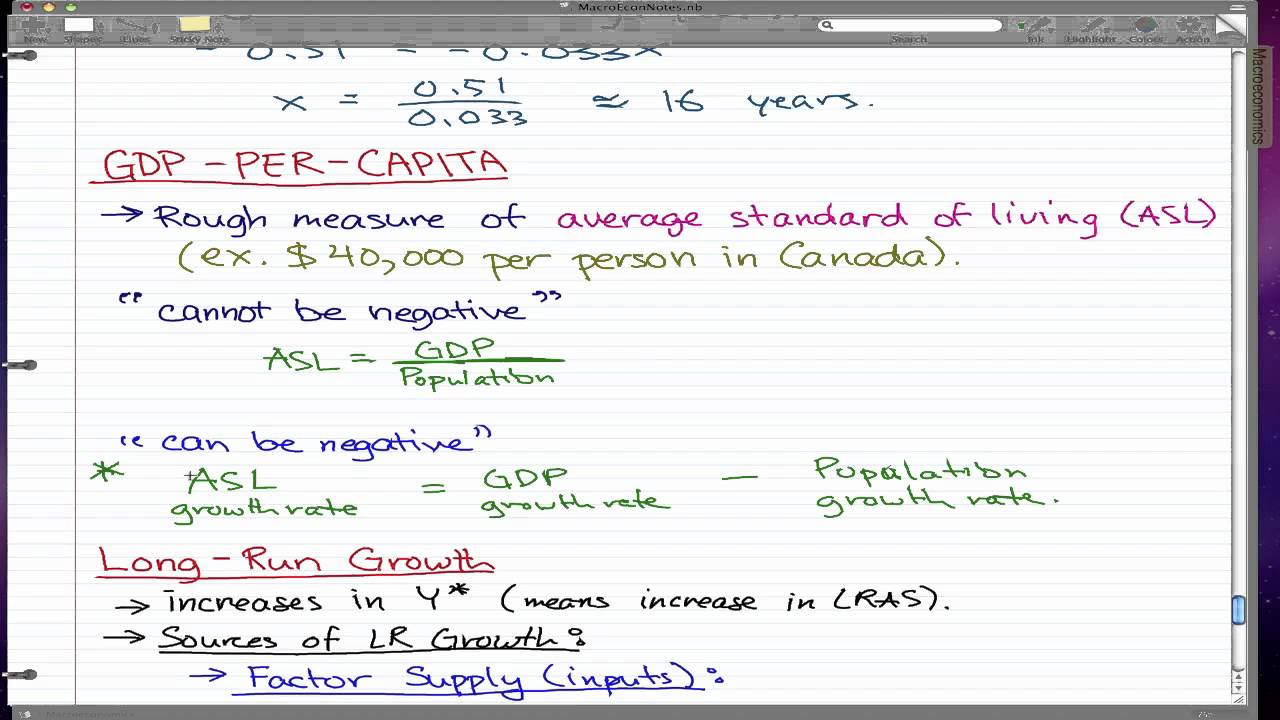 MacroEconNotes.nb
New Shapes Lines Sticky Note Search Ink Highlight Colour Action
- 0.51 = - 0.033x
Macroeconomics
x = 0.51 / 0.033 ≃ 16 years.
GDP - PER - CAPITA
→ Rough measure of average standard of living (ASL)
(ex. $40,000 per person in Canada).
“cannot be negative”
ASL = GDP / Population
“can be negative”
* ASL = GDP — Pupalation
growth rate growth rate growth rate.
Long-Run Growth
→ increases in Y* (means increase in LRAS).
→ Sources of LR Growth:
→ Factor Supply (inputs):
Macroeconomics